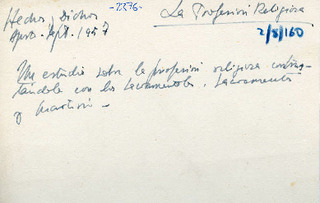 Hechos y Dichos -2376- La Profesión Religiosa
Agost. Sept. 1957 2/8/160
Un estudio sobre la profesión religiosa
con los Sacramentales, Sacramentos
y martirio -